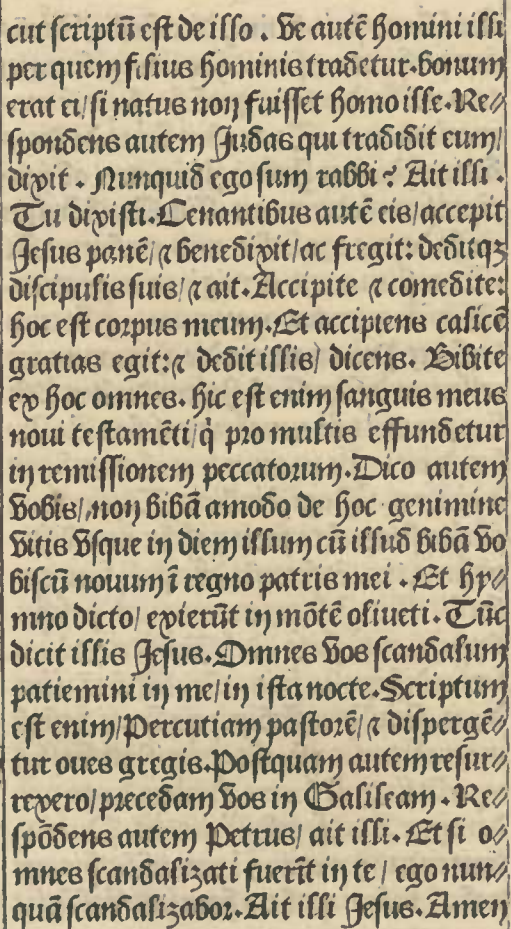 cut scriptū est de illo . Ve autē homini illi
per quem filius hominis tradetur. bonum
erat ei/ si natus non fuisset homo ille. Re⸗
spondens autem Judas qui tradidit eum/
dixit . Nunquid ego sum rabbi ? Ait illi .
Tu dixisti. Cenantibus autē eis/ accepit
Jesus panē/ ⁊ benedixit/ ac fregit: deditqꝫ
discipulis suis/ ⁊ ait. Accipite ⁊ comedite:
hoc est corpus meum. Et accipiens calicē
gratias egit: ⁊ dedit illis/ dicens. Bibite
ex hoc omnes. hic est enim sanguis meus
noui testamēti/ q̇ pro multis effundetur
in remissionem peccatorum. Dico autem
vobis/ non bibā amodo de hoc genimine
vitis vsque in diem illum cū illud bibā vo
biscū nouum ī regno patris mei . Et hy⸗
mno dicto/ exierūt in mōtē oliueti. Tūc
dicit illis Jesus. Omnes vos scandalum
patiemini in me/ in ista nocte. Scriptum
est enim/ Percutiam pastorē/ ⁊ dispergē⸗
tur oues gregis. Postquam autem resur⸗
rexero/ precedam vos in Galileam . Re⸗
spōdens autem Petrus/ ait illi. Et si o⸗
mnes scandalizati fuerīt in te / ego nun⸗
quā scandalizabor. Ait illi Jesus. Amen